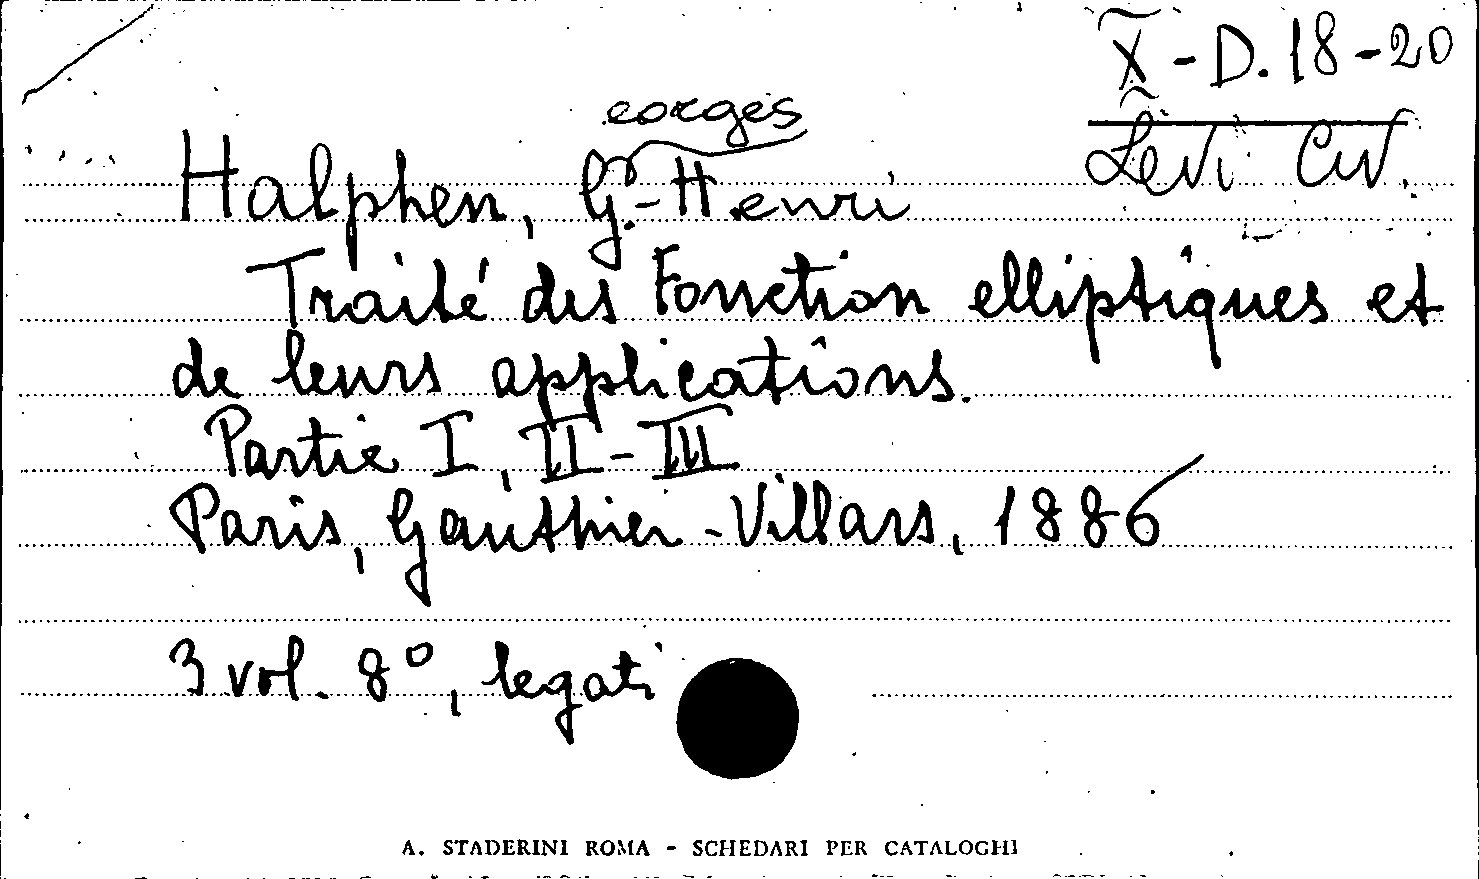 X - D. 18-20
Levi Civ.
eorges
Halphen, G.-Henri
Traité des Fonction elliptiques et
de leurs applications.
Partie I, II-III
Paris, Gauthier-Villars, 1886
3 vol. 8°, legati
A. STADERINI ROMA - SCHEDARI PER CATALOGHI